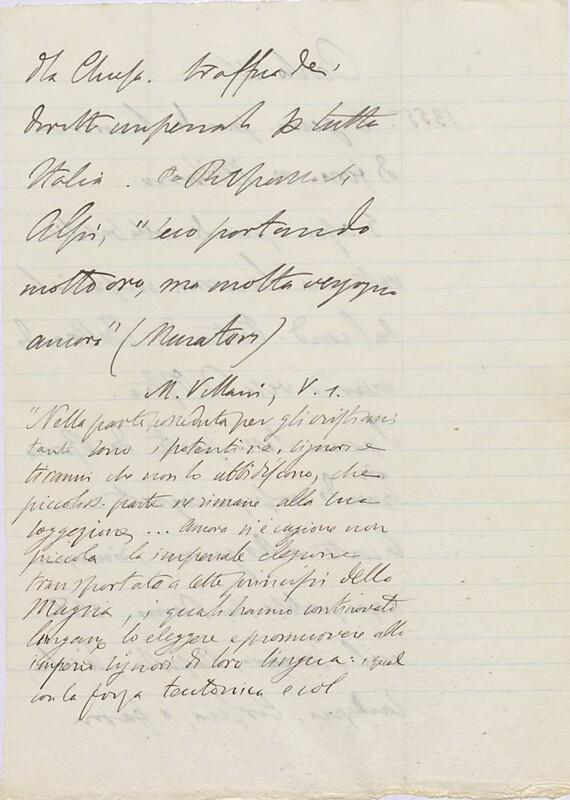 dla Chiesa. traffica dei
diritti imperiali p tutta
Italia. Ripassa le
Alpi, "seco portando
molto oro, ma molta vergogna
ancora" (Muratori)
M. Villani, V. 1.
"Nella parte posseduta per gli cristiani
tanti sono i potenti re, signori e
tiranni che non lo ubbidiscono, che
piccolis. parte ne rimane alla sua
soggezione, ... ancora n'è cagione non
piccola la imperiale elezione
transportata a sette principi dello
Magna, i quali hanno continovato
lungam. lo eleggere e promuovere allo
imperio signori di loro lingua: i quali
con la forza teutonica e col